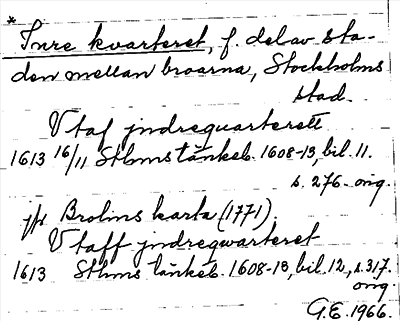 * Inre kvarteret, f. del av sta-
den mellan broarna, Stockholms
stad.
V taf jndrequarterett
1613 16/11 Sthms tänkeb. 1608-13, bil. 11.
s. 276. orig.
jfr Brolins karta (1771).
V taff jndreqwarteret
1613 Sthms tänkeb. 1608-13, bil. 12, s. 317.
orig.
G.E. 1966.